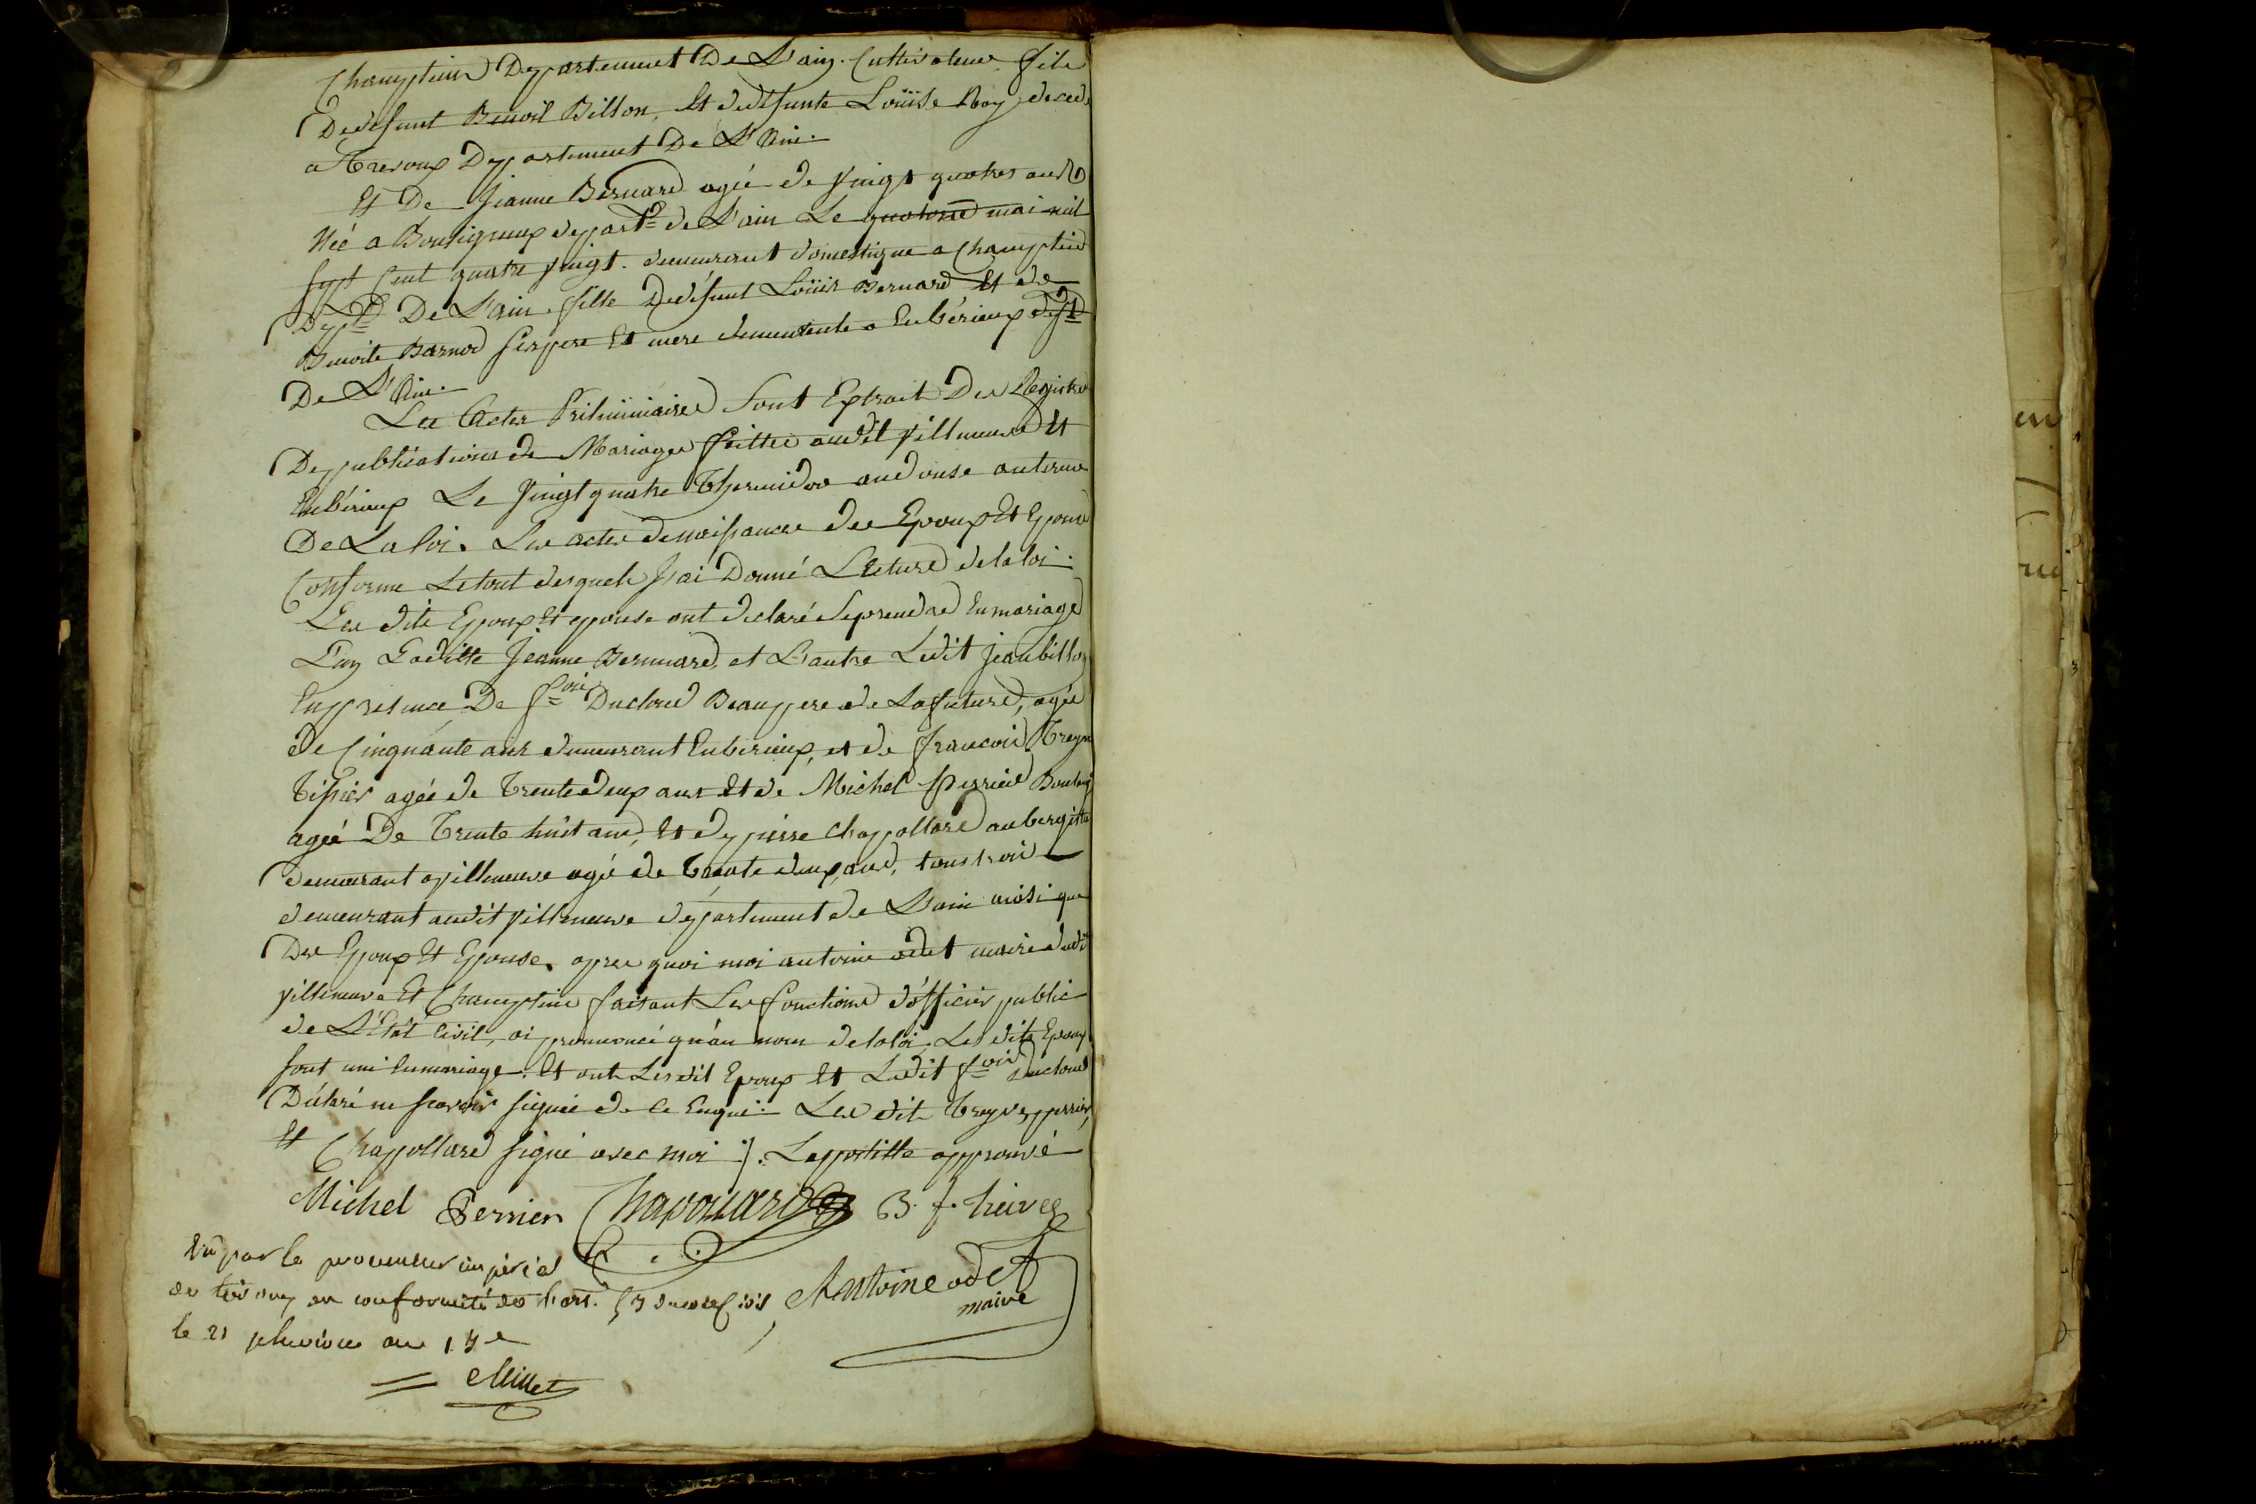 Champteins Departement De L'ain. Cultivateur fils
De défunt Benoit Billon, Et dedéfunte Loüise Roy décedé
a Trevoux Departement De L'Ain.
Et De Jeanne Bernard agée de vingt quatres ans
Née a Bouligneux depart.t de L'ain Le quatorze mai mil
sept Cent quatre vingt. demeurant domestique a Champteins
Dep.t De L'ain. fille De défunt Loüis Bernard Et de
Benoite Barnod ses pere Et mere demeurente a Enbérieux dep.t
De L'Ain.
Les Actes Préliminaires Sont Extrait Des Registre
De publications de Mariages faittes audit villeneuve Et
Enbérieux Le vingt quatre Thermidor an douse au terme
De La loi. Les actes de naissances des Epoux Et Epouse
Conforme Le tout desquels J'ai Donné Lecture de la loi.
Les dits Epoux Et epouse ont declaré Se prendre En mariage
L'un Laditte Jeanne Bernnard et L'autre Ledit jean billon
En presence De f.ois Duclous Beaupere de La future, agée
de Cinquante ans demeurant Enberieux, et de francois Treyve
Tissier agée de Trente deux ans Et de Michel Perrier Boulang
agée De Trente huit ans, Et De pierre Chapollard aubergiste
demeurant a villeneuve agé de Trente deux ans, tous trois
demeurant audit villeneuve departement de L'ain ainsi que
Des Epoux Et Epouse. apres quoi moi antoine odet maire dudit
villeneuve Et Champteins faisant Les fonctions d'officier public
de L'Etat Civil, ai prononcé qu'au nom de la loi, Les dits Epoux
sont uni En mariage. Et ont Lesdit Epoux Et Ledit f.ois Duclous
Déclaré ne scavoir signée de ce Enquis. Les dits Treyve, perrier,
Et Chapollard signé avec moi /. L'appostille approuvé
Michel Perrier Chapollard B. f. treive
Vu par le procureur impérial
de trévoux en conformité de l'art. 53 du code civil Antoine odet
maire
le 21 pluviose an 13e
Millet